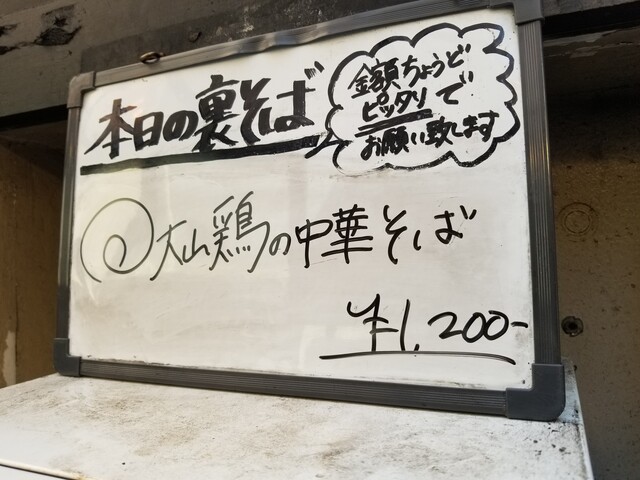 本日の裏そば
金額ちょうど
ピッタリで
お願い致します
大山鶏の中華そば
¥1,200-